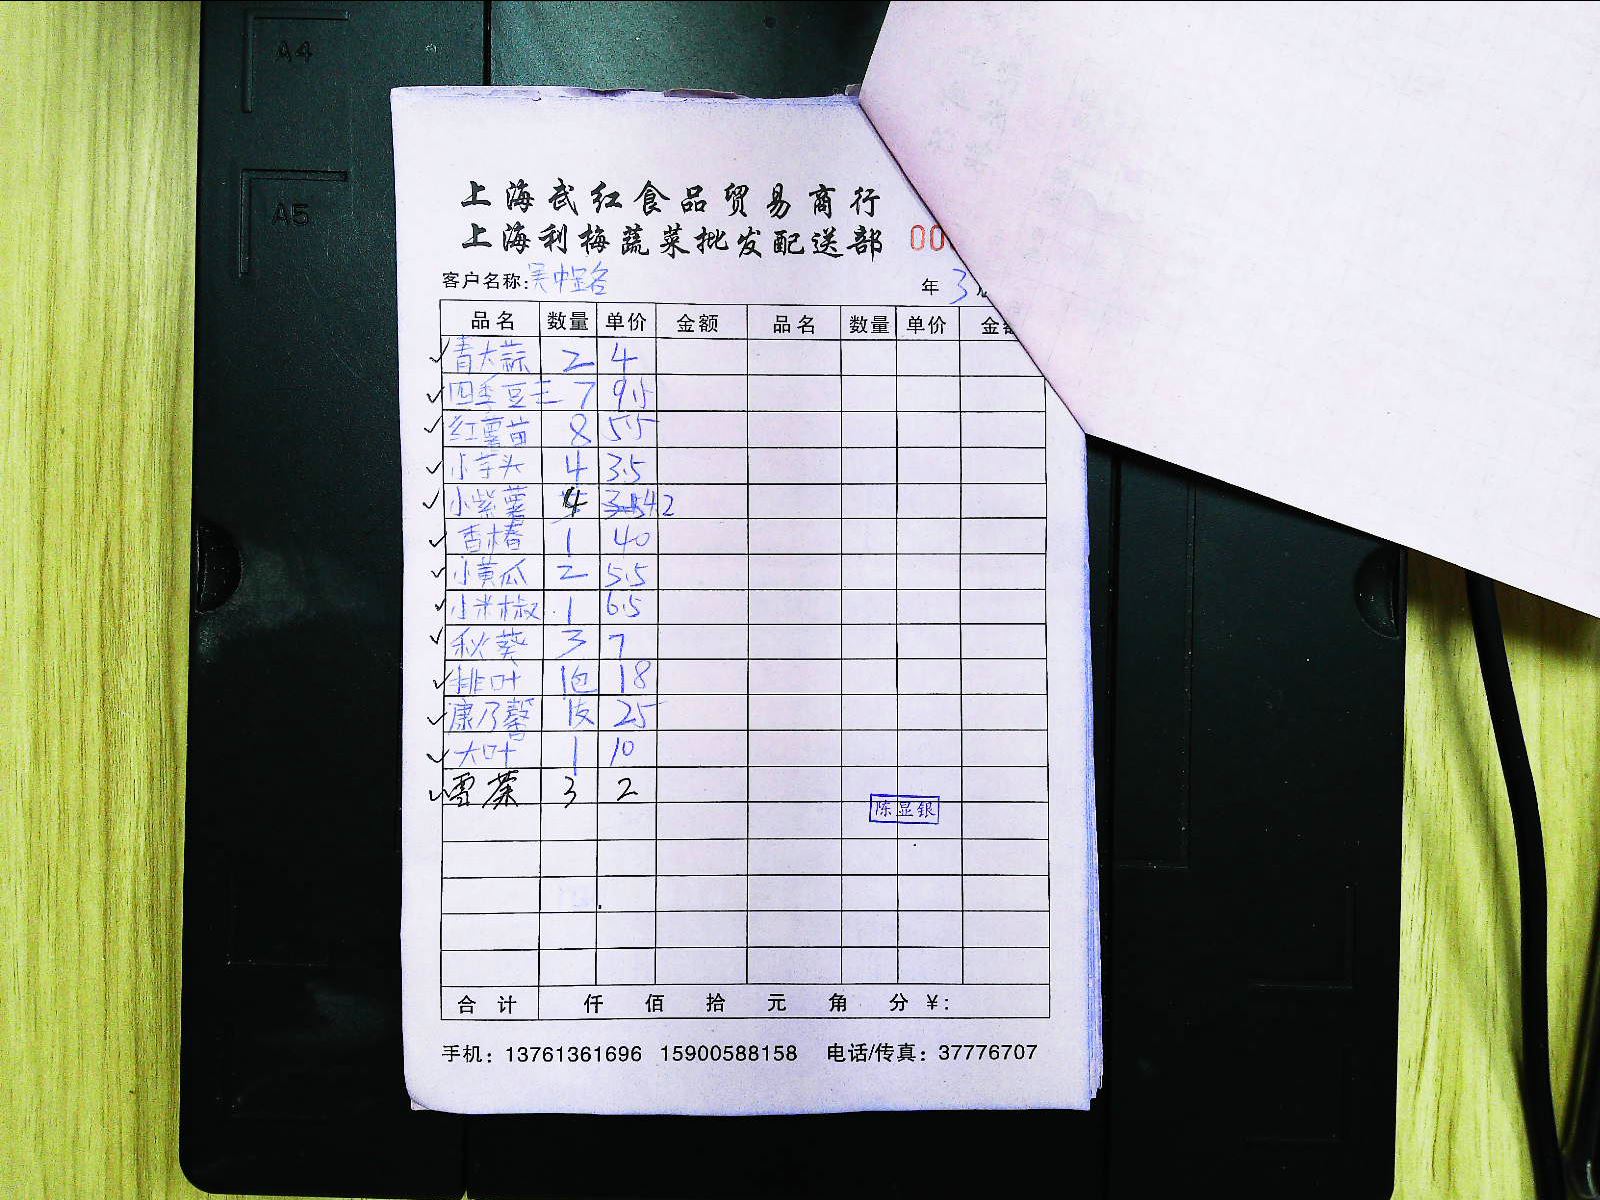 A4
A5
上海武红食品贸易商行
上海利梅蔬菜批发配送部 00
客户名称: 年 3
品名 数量 单价 金额 品名 数量 单价 金额
青大蒜 2 4
四季豆 7 9.5
红薯苗 8 5.5
小芋头 4 3.5
小紫薯 4 4.2
香椿 1 40
小黄瓜 2 5.5
小米椒 1 6.5
秋葵 3 7
排叶 1包 18
康乃馨 1 25
大叶 1 10
雪菜 3 2
陈显银
合计 仟 佰 拾 元 角 分 ¥:
手机：13761361696 15900588158 电话/传真：37776707